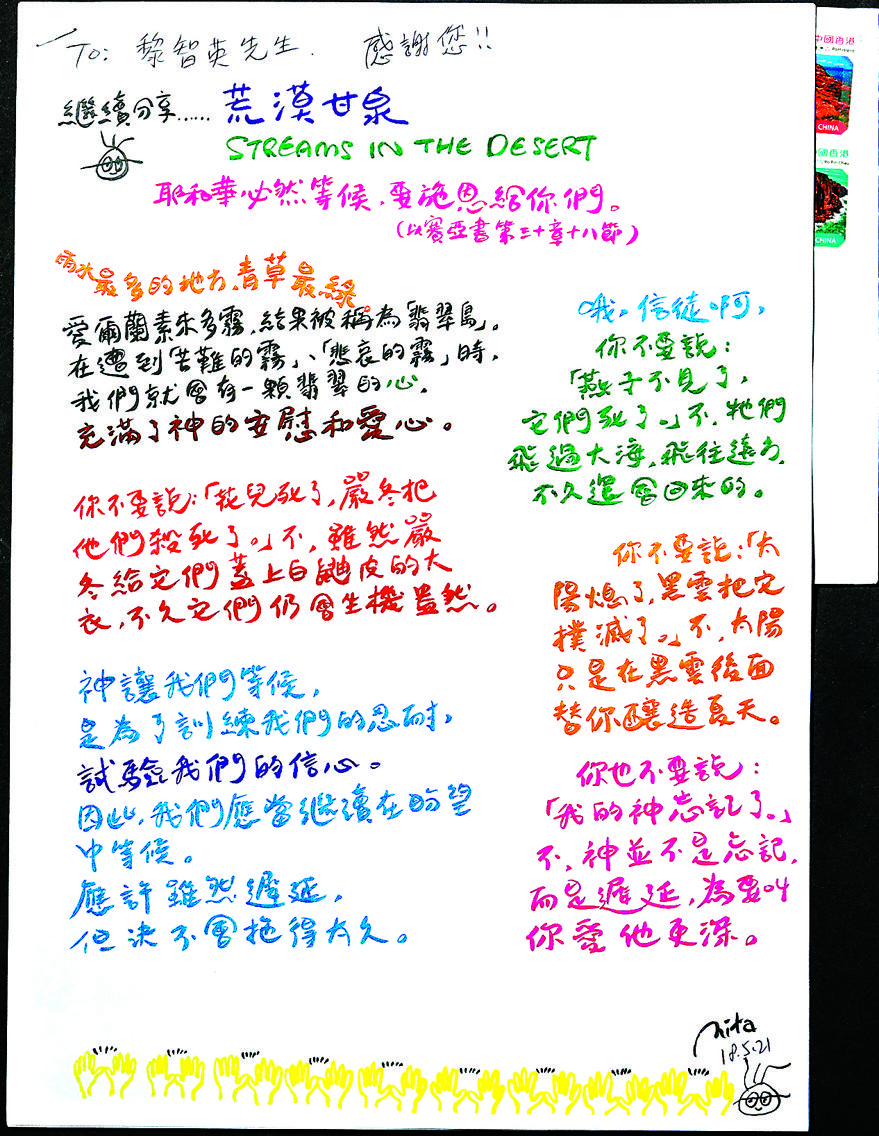 To: 黎智英先生. 感謝您!!
繼續分享…… 荒漠甘泉
STREAMS IN THE DESERT
耶和華必然等候，要施恩給你們。
(以賽亞書第三十章十八節)
雨水最多的地方，青草最綠。
愛爾蘭素來多霧，結果被稱為「翡翠島」。
在遭到「苦難的霧」、「悲哀的霧」時，
我們就會有一顆翡翠的心，
充滿了神的安慰和愛心。
你不要說：「花兒死了，嚴冬把
他們殺死了。」不，雖然嚴
冬給它們蓋上白鼬皮的大
衣，不久它們仍會生機盎然。
神讓我們等候，
是為了訓練我們的忍耐，
試驗我們的信心。
因此，我們應當繼續在盼望
中等候。
應許雖然遲延，
但決不會拖得太久。
哦。信徒啊，
你不要說：
「燕子不見了，
它們死了。」不，牠們
飛過大海，飛往遠方，
不久還會回來的。
你不要說：「太
陽熄了，黑雲把它
撲滅了。」不，太陽
只是在黑雲後面
替你釀造夏天。
你也不要說：
「我的神忘記了。」
不，神並不是忘記，
而是遲延，為要叫
你愛他更深。
Nita
18.5.21
中國香港
CHINA
中國香港
CHINA